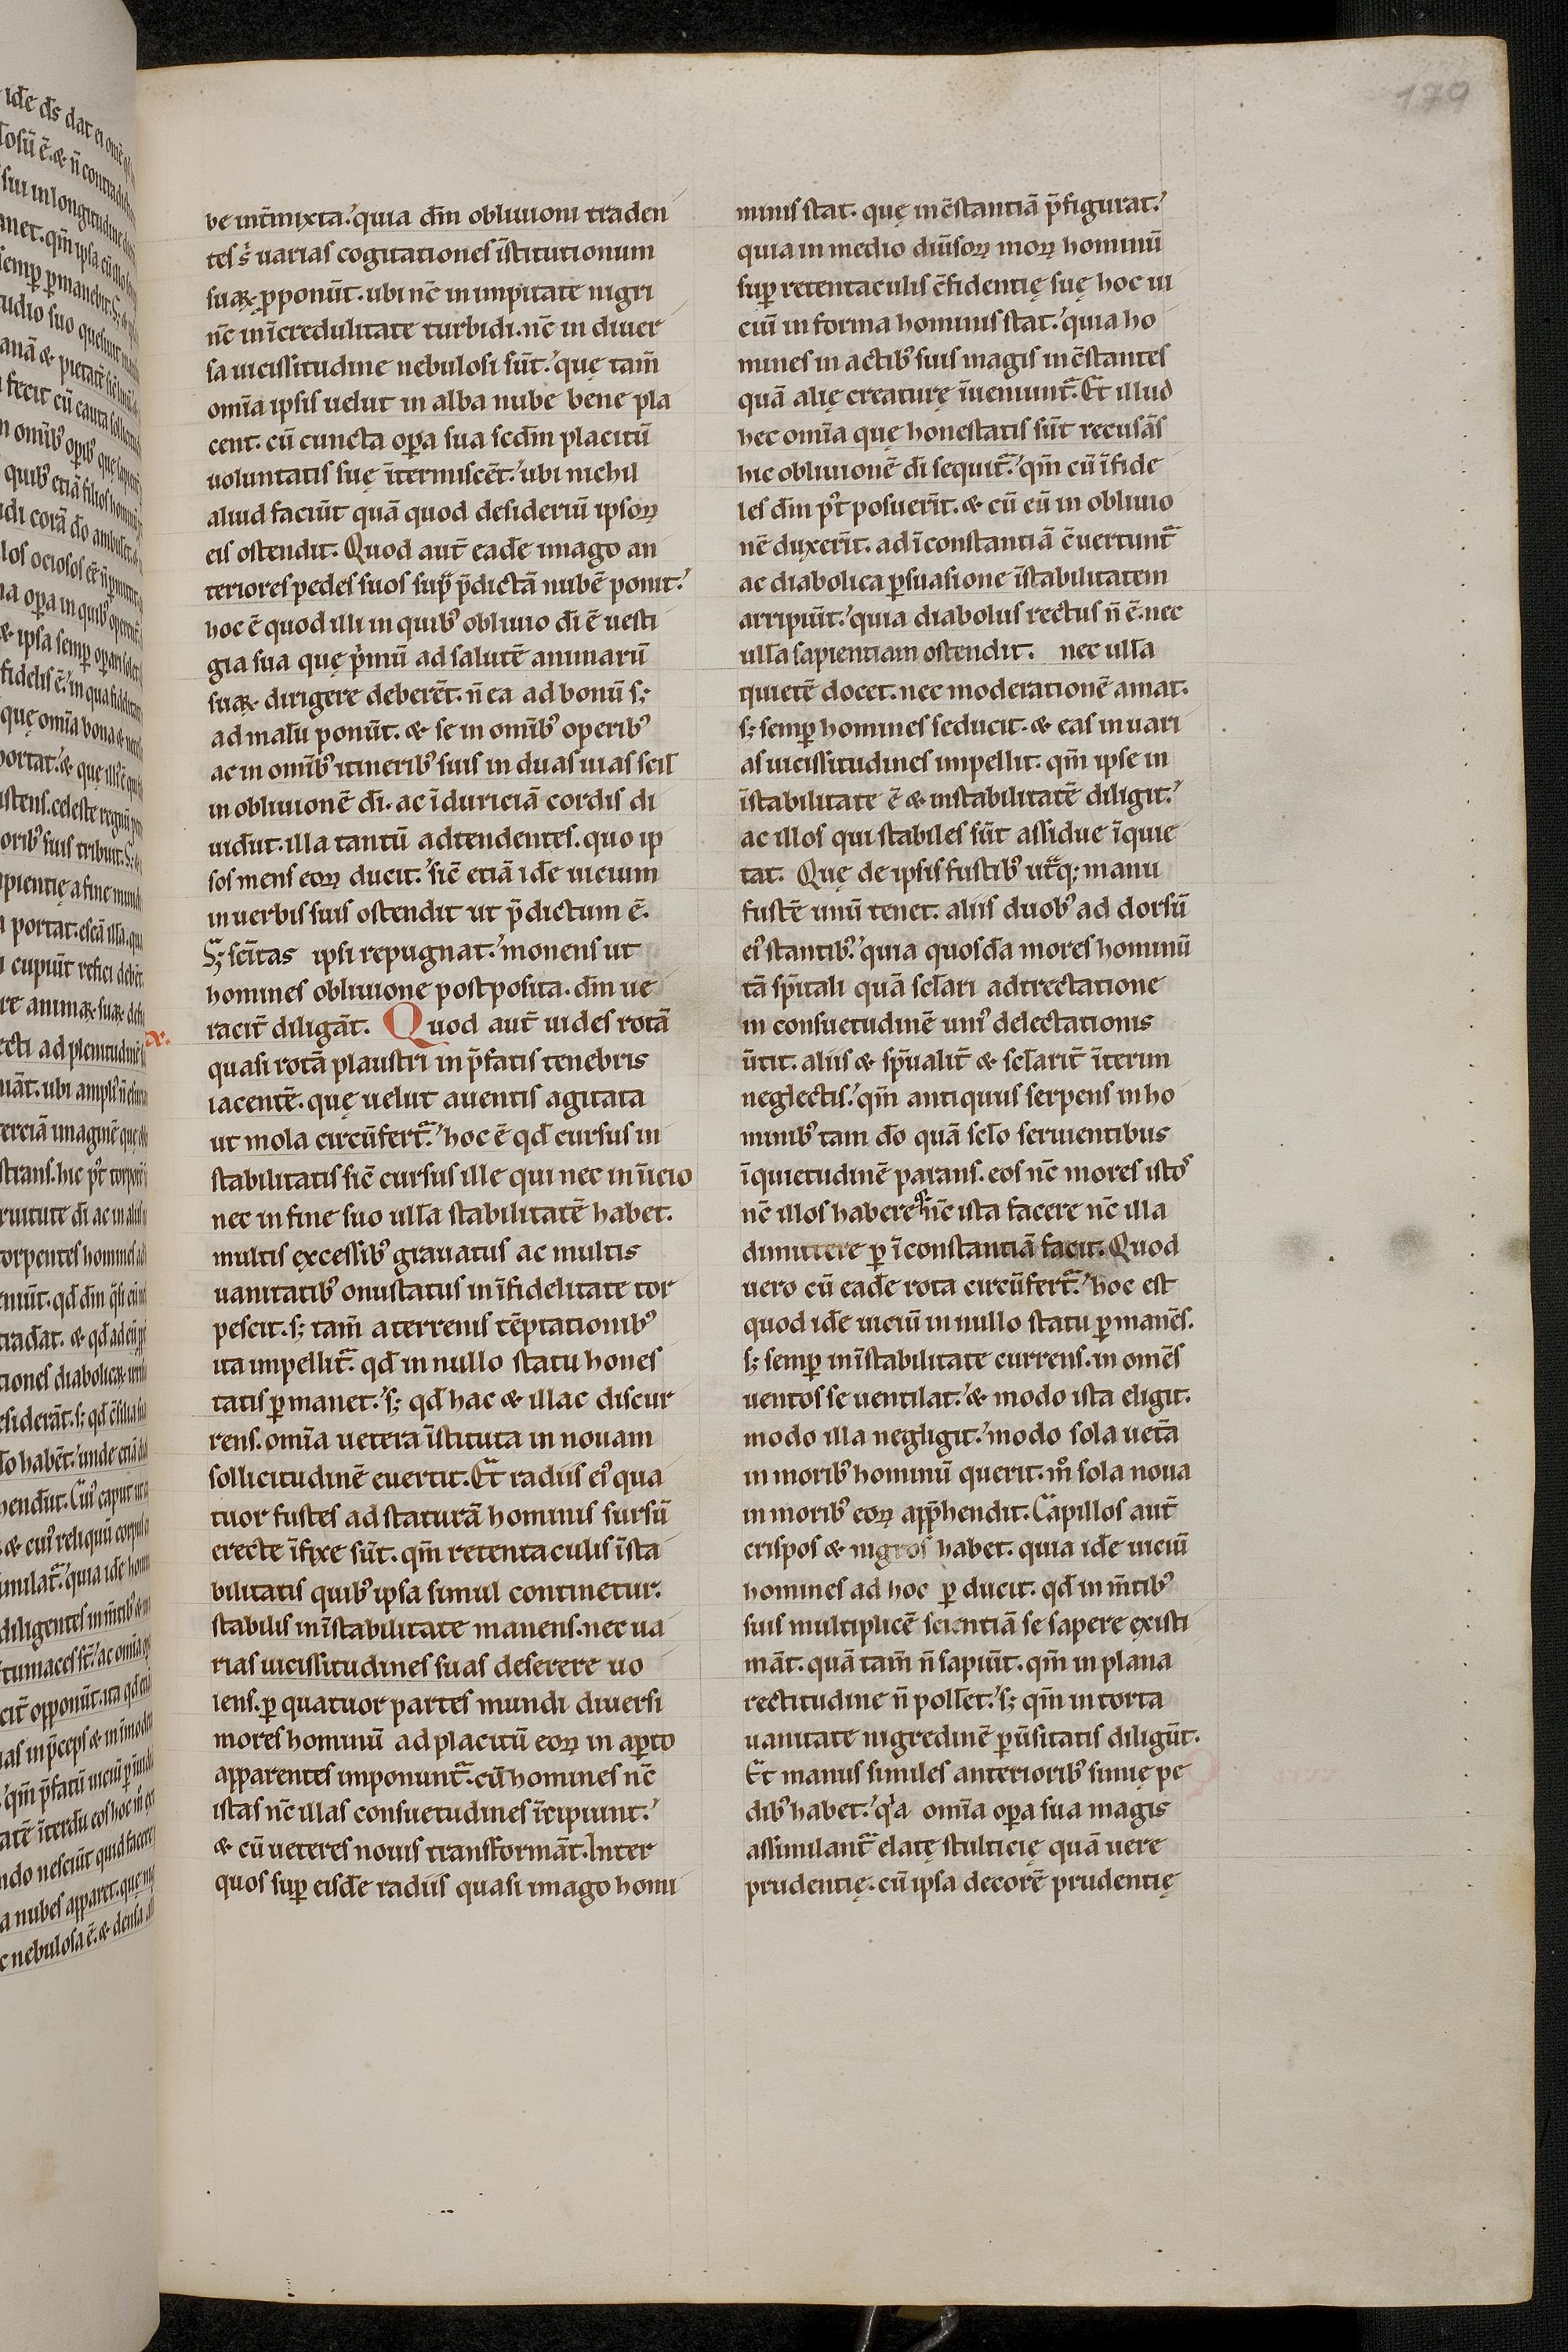 179
be int̄mixta. quia dm̄ obliuioni traden
tes s; uarias cogitationes īstitutionum
suaꝝ ꝓponūt. ubi nc̄ in impietate nigri
nc̄ in īcredulitate turbidi. nc̄ in diuer
sa uicissitudine nebulosi sūt. quę tam̄
om̄ia ipsis uelut in alba nube bene pla
cent. cū cuncta oꝑa sua scdm̄ placitū
uoluntatis suę ītermiscēt. ubi nichil
aliud faciūt quā quod desideriū ipsoꝝ
eis ostendit. Quod aut̄ eadē imago an
teriores pedes suos suꝑ p̄dictā nubē ponit.
hoc ē quod illi in quibꝰ obliuio di ē uesti
gia sua quę p̄mū ad salutē animarū
suaꝝ dirigere deberēt. n̄ ea ad bonū s;
ad malū ponūt. & se in om̄ibꝰ operibꝰ
ac in om̄ibꝰ itineribꝰ suis in duas uias scil̄
in obliuionē di. ac ī duriciā cordis di
uidūt. illa tantū adtendentes. quo ip
sos mens eoꝝ ducit. sic̄ etiā idē uicium
in uerbis suis ostendit ut p̄dictum ē.
S; sc̄itas ipsi repugnat. monens ut
homines obliuione postposita. dm̄ ue
racit̄ diligāt. Quod aut̄ uides rotā
x.
quasi rotā plaustri in p̄fatis tenebris
iacentē. quę uelut auentis agitata
ut mola circūfert̄. hoc ē qd̄ cursus in
stabilitatis sic̄ cursus ille qui nec in īicio
nec in fine suo ulla stabilitatē habet.
multis excessibꝰ grauatus ac multis
uanitatibꝰ onustatus in īfidelitate tor
pescit. s; tam̄ a terrenis tēptationibꝰ
ita impellit̄. qd̄ in nullo statu hones
tatis ꝑmanet. s; qd̄ hac & illac discur
rens. om̄ia uetera īstituta in nouam
sollicitudinē euertit. Et radiis eiꝰ qua
tuor fustes ad staturā hominis sursū
erecte īfixe sūt. qm̄ retentaculis īsta
bilitatis quibꝰ ipsa simul continetur.
stabilis in īstabilitate manens. nec ua
rias uicissitudines suas deserere uo
lens. ꝑ quatuor partes mundi diuersi
mores hominū ad placitū eoꝝ in aꝑto
apparentes imponunt̄. cū homines nc̄
istas nc̄ illas consuetudines īcipiunt.
& cū ueteres nouis transformāt. Inter
quos suꝑ eisdē radiis quasi imago homi
minis stat. quę in c̄stantiā p̄figurat.
quia in medio diūsoꝝ moꝝ hominū
suꝑ retentaculis c̄fidentię suę hoc ui
ciū in forma hominis stat. quia ho
mines in actibꝰ suis magis in c̄stantes
quā alię creaturę īueniunt̄. Et illud
hec om̄ia quę honestatis sūt recusās
hic obliuionē di sequit̄. qm̄ cū īfide
les dm̄ pꝰt posuerīt. & cū eū in obliuio
nē duxerīt. ad īconstantiā c̄uertunt̄
ac diabolica ꝑsuasione īstabilitatem
arripiūt. quia diabolus rectus n̄ ē. nec
ulla sapientiam ostendit. nec ulla
quietē docet. nec moderationē amat.
s; semꝑ homines seducit. & eas in uari
as uicissitudines impellit. qm̄ ipse in
īstabilitate ē & instabilitatē diligit.
ac illos qui stabiles sūt assidue īquie
tat. Quę de ipsis fustibꝰ utq̄; manu
fustē unū tenet. aliis duobꝰ ad dorsū
eiꝰ stantibꝰ. quia quosdā mores hominū
tā sp̄itali quā sclari adtrectatione
in consuetudinē uniꝰ delectationis
ūtit. aliis & sp̄ualit̄ & sclarit̄ īterim
neglectis. qm̄ antiquus serpens in ho
minibꝰ tam dō quā sclo seruientibus
īquietudinē parans. eos nc̄ mores istoꝰ
nc̄ illos habere nc̄ ista facere nc̄ illa
dimittere ꝑ īconstantiā facit. Quod
uero cū eadē rota circūfert̄. hoc est
quod idē uiciū in nullo statu ꝑmanēs.
s; semꝑ in īstabilitate currens. in omēs
uentos se uentilat. & modo ista eligit.
modo illa negligit. modo sola uetā
in moribꝰ hominū querit. mō sola noua
in moribꝰ eoꝝ app̄hendit. Capillos aut̄
crispos & nigros habet. quia idē uiciū
homines ad hoc ꝑducit. qd̄ in m̄tibꝰ
suis multiplicē scientiā se sapere existi
māt. quā tam̄ n̄ sapiūt. qm̄ in plana
rectitudine n̄ pollet. s; qm̄ in torta
uanitate nigredinē ꝑūsitatis diligūt.
Et manus similes anterioribꝰ simię pe
dibꝰ habet. qꝛa om̄ia oꝑa sua magis
assimilant̄ elatę stulticię quā uere
prudentię. cū ipsa decorē prudentię